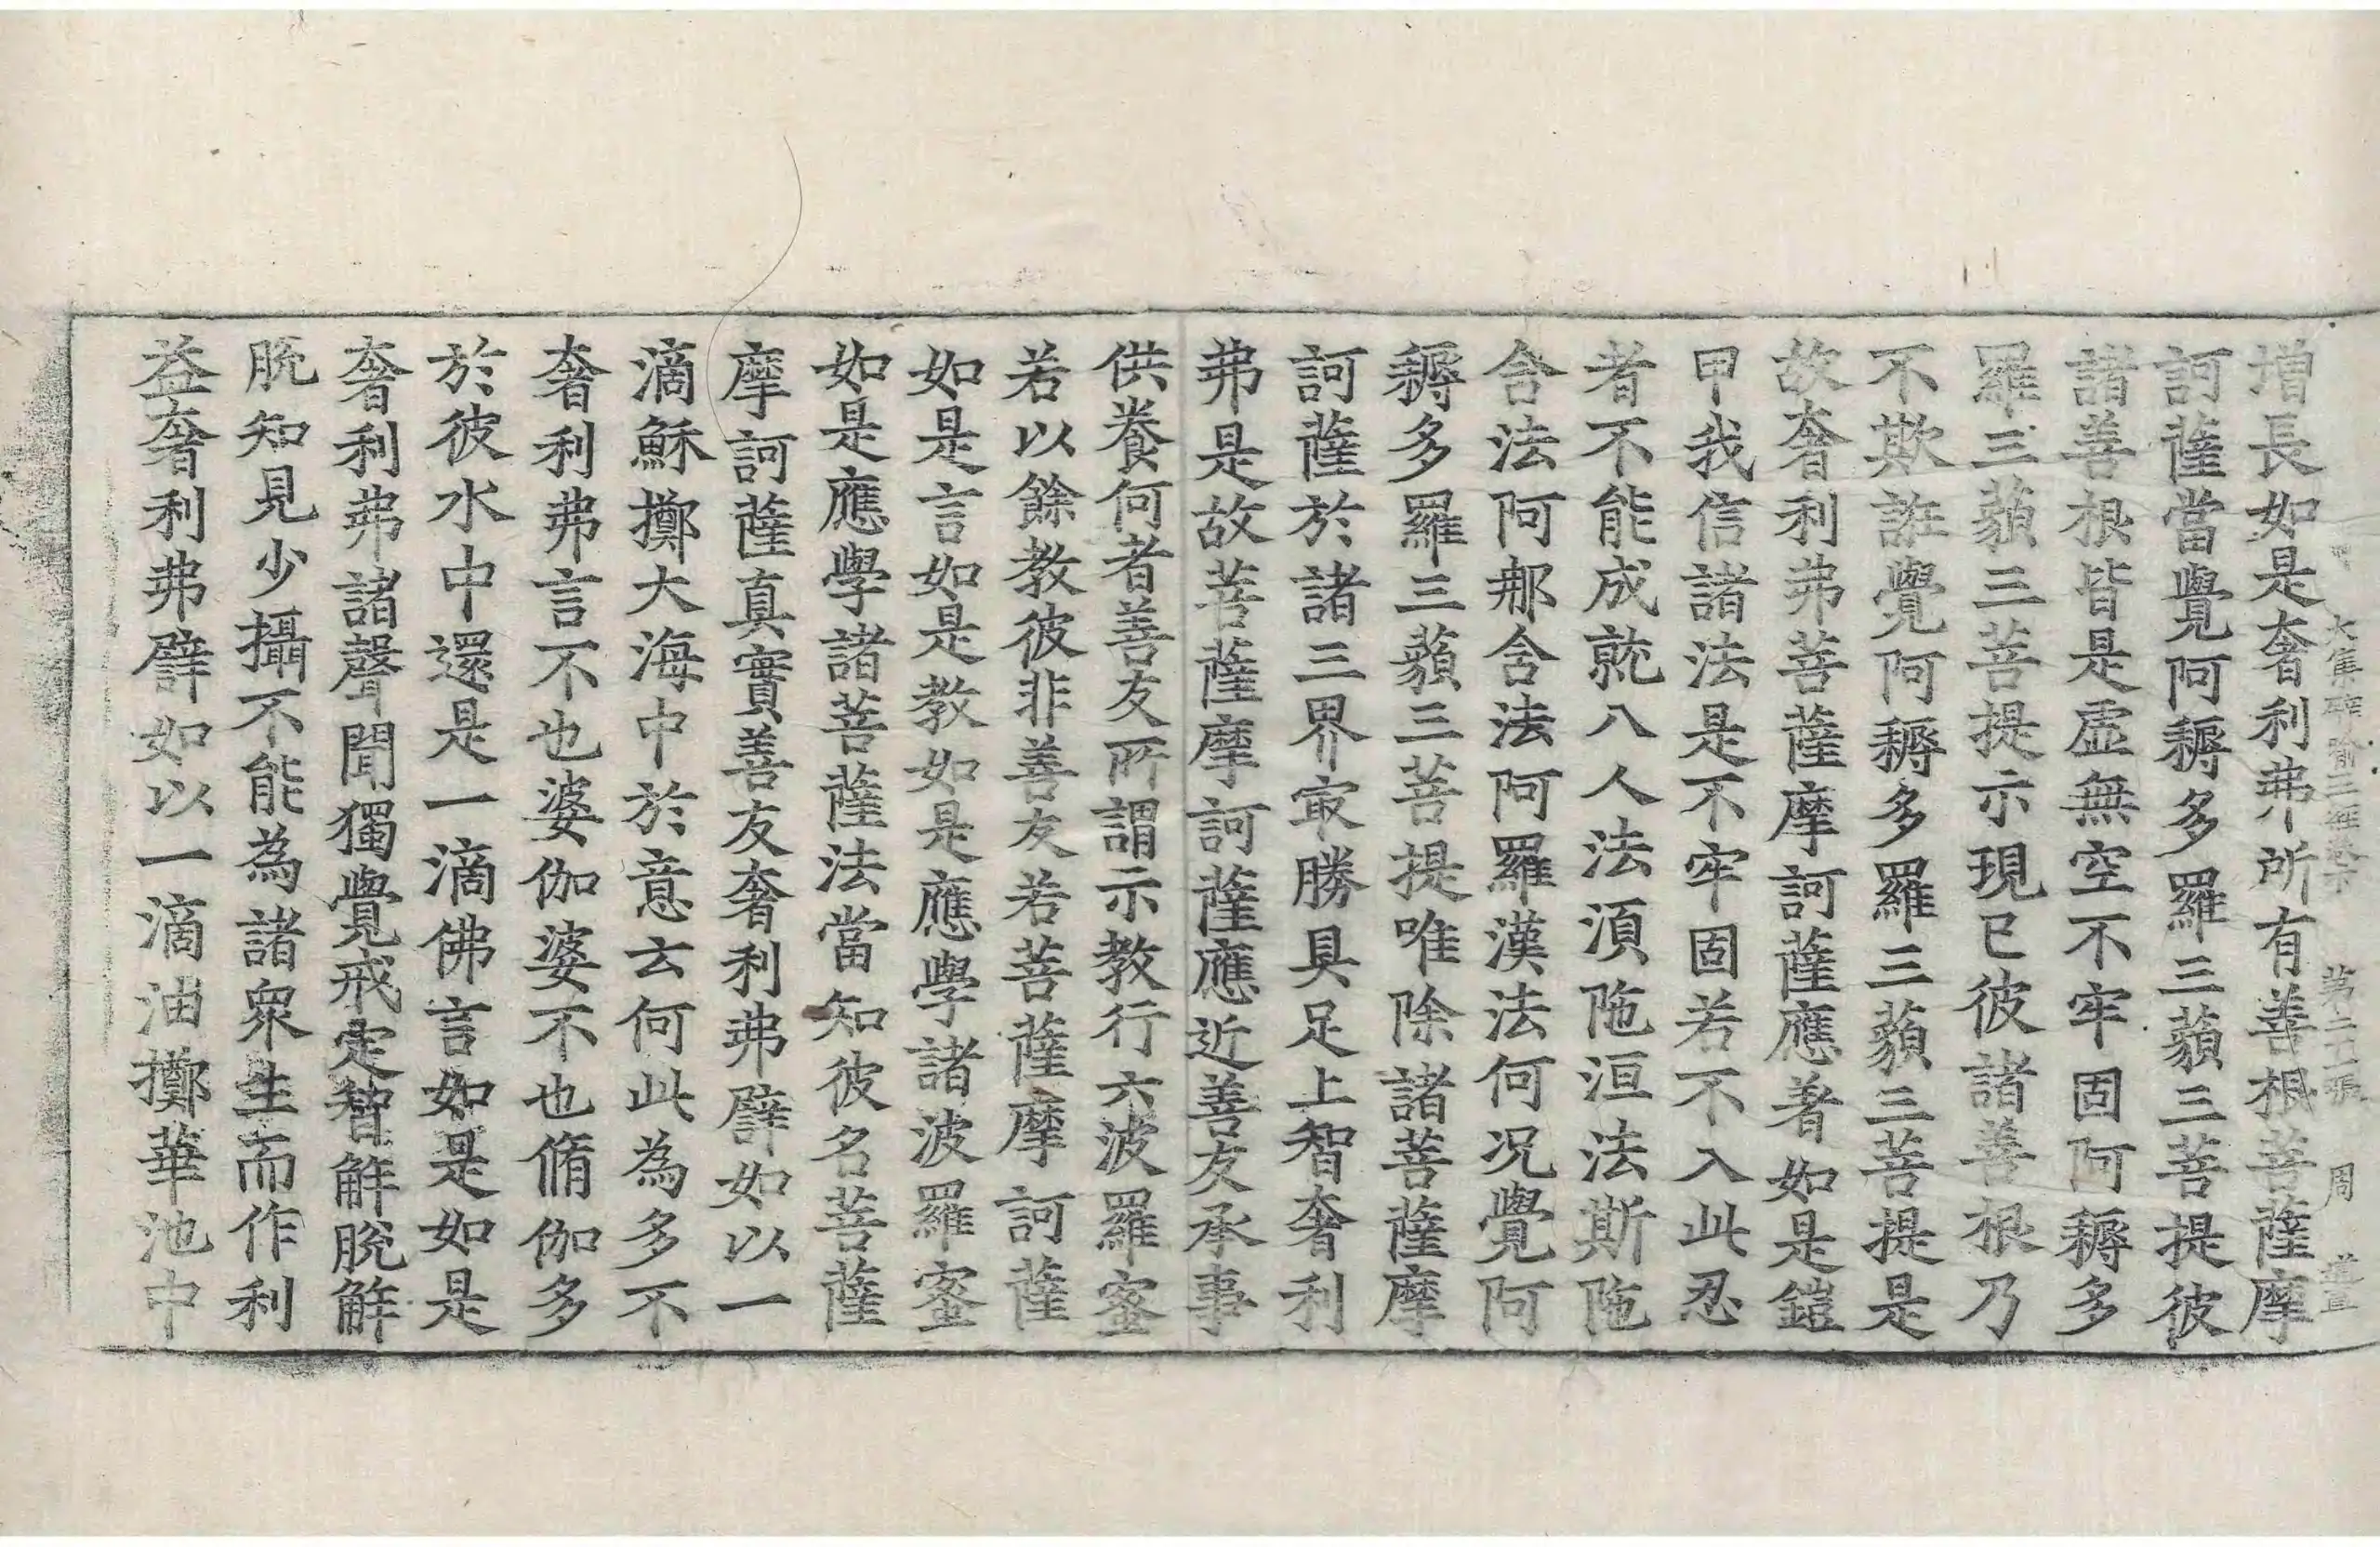 增長如是奢利弗所有善根菩薩摩
訶薩當覺阿耨多羅三藐三菩提彼
諸善根皆是虛無空不牢固阿耨多
羅三藐三菩提示現已彼諸善根乃
不欺誑覺阿耨多羅三藐三菩提是
故奢利弗菩薩摩訶薩應著如是鎧
甲我信諸法是不牢固若不入此忍
者不能成就八人法湏陁洹法斯陁
含法阿那含法阿羅漢法何況覺阿
耨多羅三藐三菩提唯除諸菩薩摩
訶薩於諸三界㝡勝具足上智奢利
弗是故菩薩摩訶薩應近善友承事
供養何者善友所謂示教行六波羅蜜
若以餘教彼非善友若菩薩摩訶薩
如是言如是教如是應學諸波羅蜜
如是應學諸菩薩法當知彼名菩薩
摩訶薩真實善友奢利弗譬如以一
滴穌擲大海中於意云何此為多不
奢利弗言不也婆伽婆不也脩伽多
於彼水中還是一滴佛言如是如是
奢利弗諸聲聞獨覺戒定智解脫解
脫知見少攝不能為諸衆生而作利
益奢利弗譬如以一滴油擲華池中